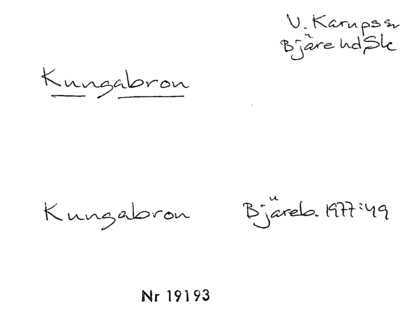 V. Karups sn
Bjäre hd, Sk
Kungabron
Kungabron Bjäreb. 1977:49
Nr 19193